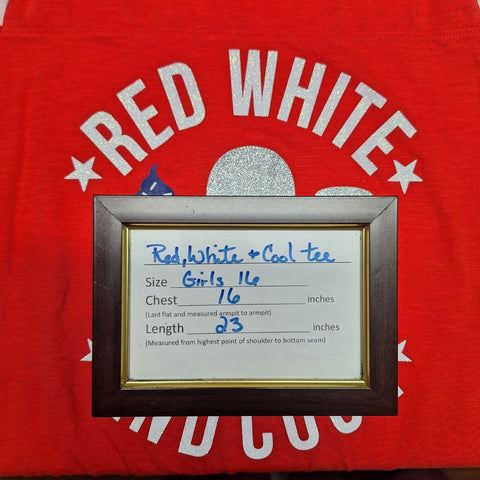 RED WHITE
Red, White + Cool tee
Size Girls 16
Chest 16 inches
(Laid flat and measured armpit to armpit)
Length 23 inches
(Measured from highest point of shoulder to bottom seam)
AND COOL